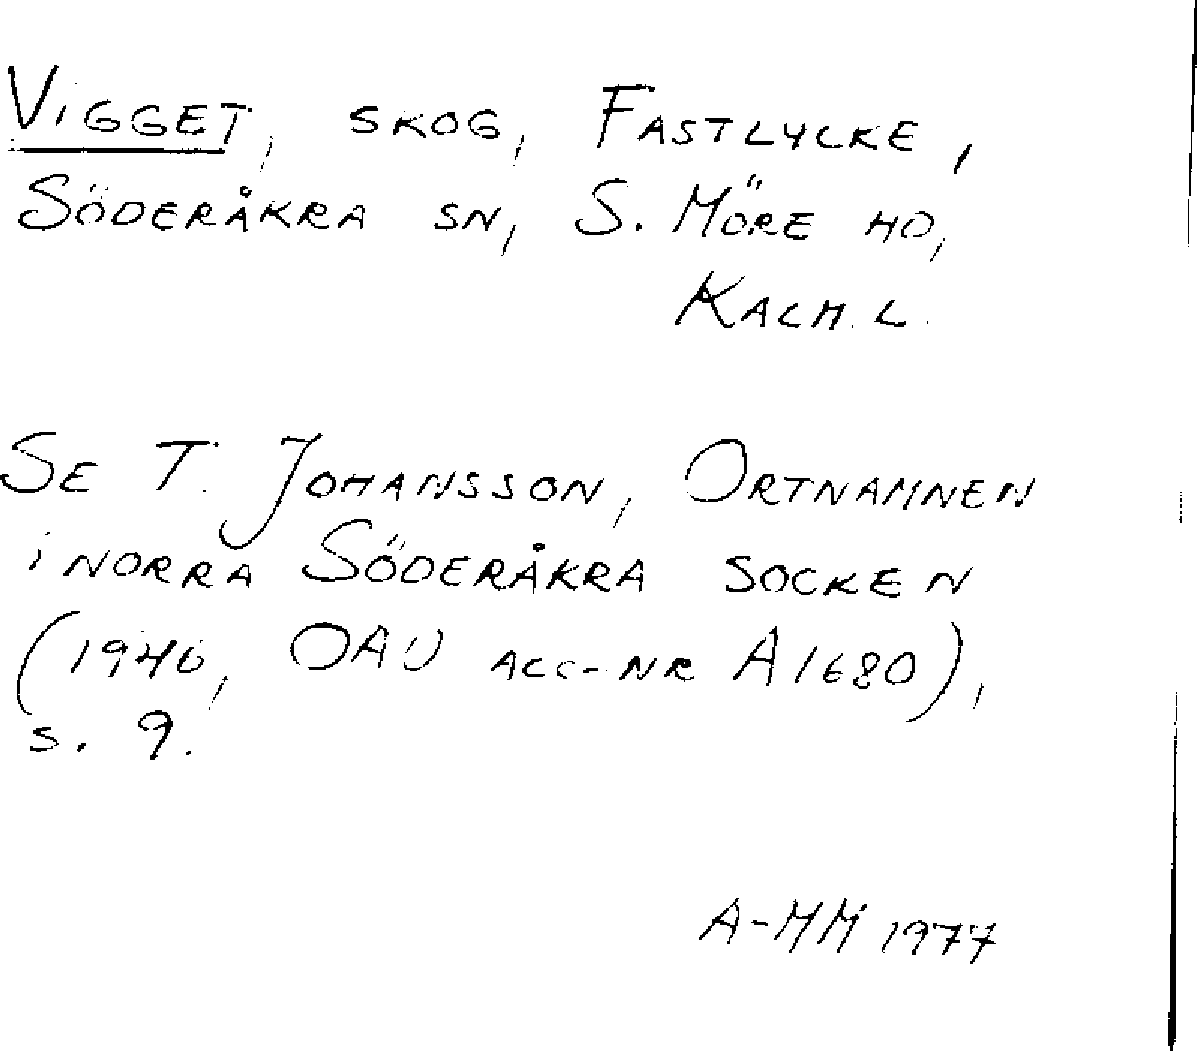 VIGGET, SKOG, FASTLYCKE,
SÖDERÅKRA SN, S. MÖRE HD,
KALM. L.
SE T. JOHANSSON, ORTNAMNEN
i NORRA SÖDERÅKRA SOCKEN
(1946, OAU ACC-NR A1680),
s. 9.
A-MM 1977